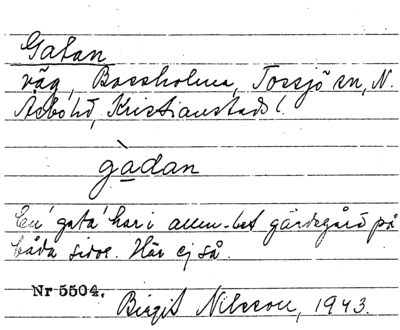 Gatan
väg, Bassholma, Tossjö sn, N.
Åsbo hd, Kristianstads l.
gàdan
En 'gata' har i allm. bet gärdsgård på
båda sidor. Här ej så.
Nr 5504.
Birgit Nilsson, 1943.